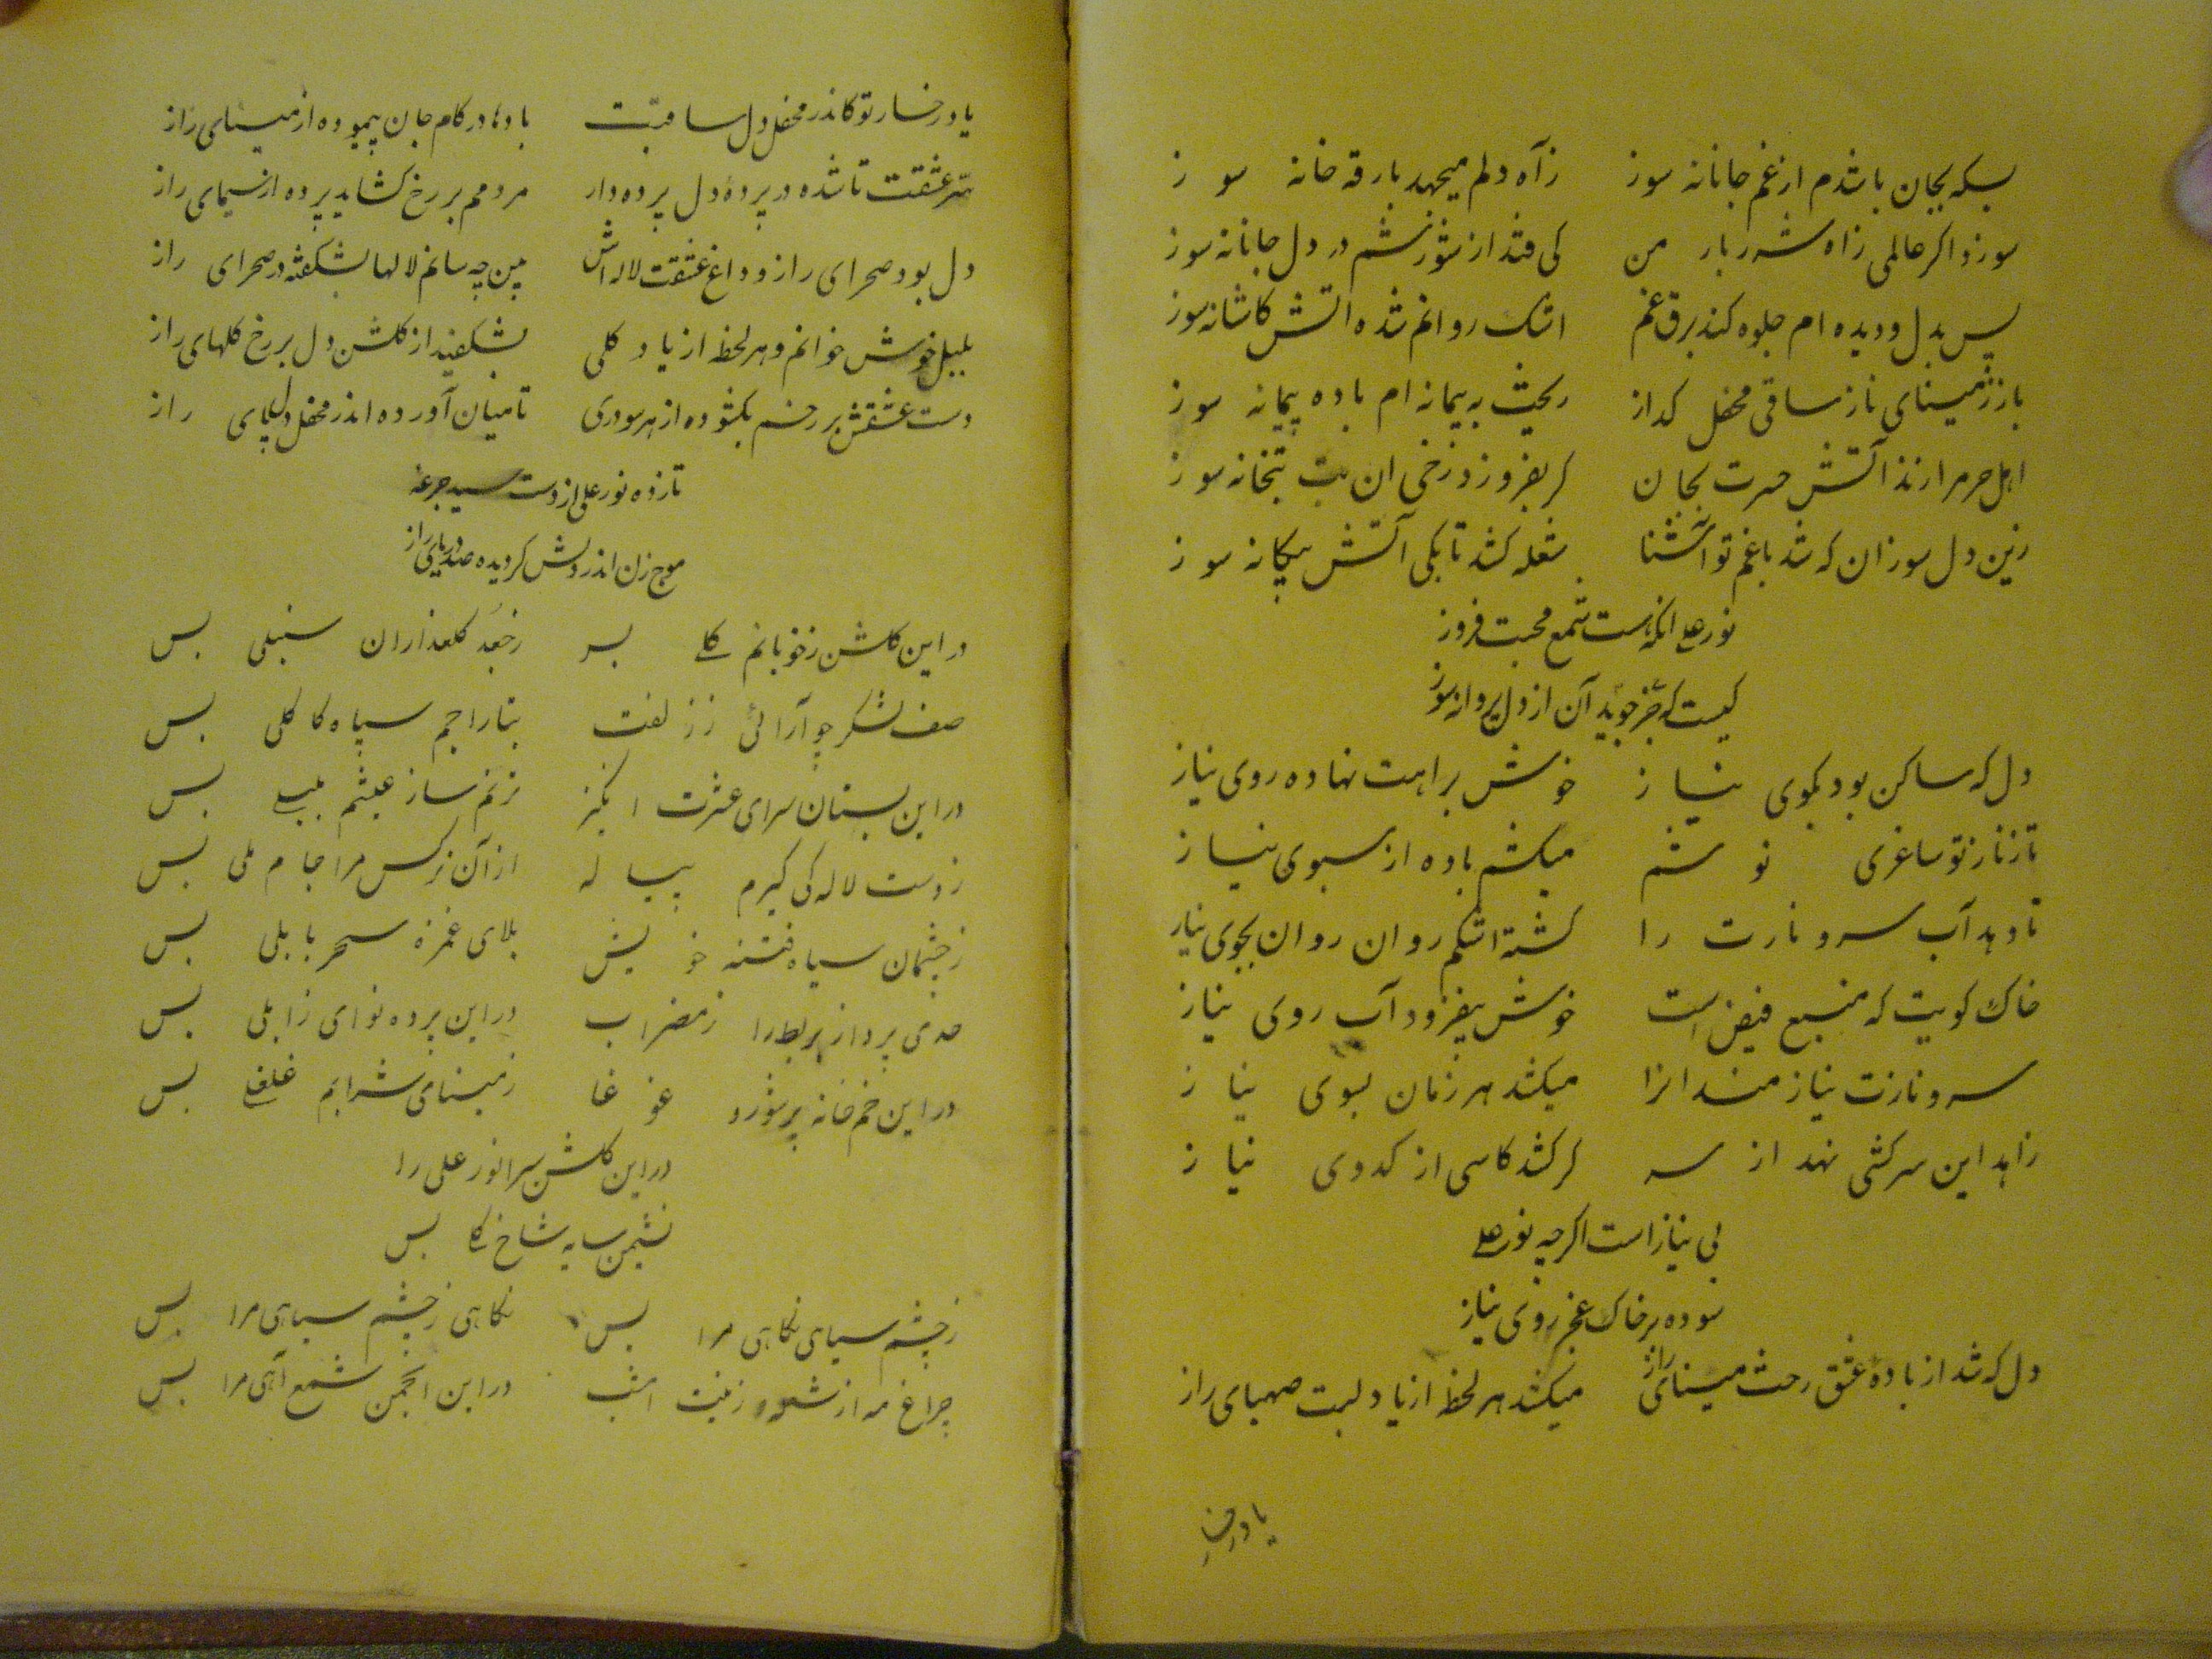 بسکه بجان باشدم از غم جانانه سوز زآه دلم میجهد بارقه خانه سوز
سوزد اگر عالمی زاه شرر بار من کی فتد از سوزشم در دل جانانه سوز
پس بدل و دیده ام جلوه کند برق غم اشک روانم شده اتش کاشانه سوز
باز زمینای ناز ساقی محفل گداز ریخت به پیمانه ام باده پیمانه سوز
اهل حرم را زند آتش حسرت بجان گر بفروزد رخی ان بت بتخانه سوز
زین دل سوزان که شد با غم تو آشنا شعله کشد تا بکی آتش بیگانه سوز
نورعلی انکه هست شمع محبت فروز
کیست که جز جوید آن از دل پروانه سوز
دل که ساکن بود بکوی نیاز خوش براهت نهاده روی نیاز
تا زناز تو ساغری نوشم میکشم باده از سبوی نیاز
تا دهد آب سرو نازت را گشته اشکم روان روان بجوی نیاز
خاک کویت که منبع فیض است خوش بیفزود آب روی نیاز
سرو نازت نیازمندانرا میکشد هر زمان بسوی نیاز
زاهد این سرکشی نهد از سر گر کشد کاسی از کدوی نیاز
بی نیاز است اگرچه نورعلی
سوده بر خاک عجز روی نیاز
دل که شد از باده عشق رخت مینای راز میکشد هر لحظ از یاد لبت صهبای راز
یاد رخ
یاد رخسار تو کاندر محفل دل ساقیست بادها در کام جان پیموده از مینای راز
سّر عشقت تا شده در پردهٔ دل پرده دار مردمم بر رخ گشاید پرده از سیمای راز
دل بود صحرای راز و داغ عشقت لاله اش بین چه سانم لالها بشکفته در صحرای راز
بلبل خوش خوانم و هر لحظ از یاد گلی بشکفید از گلشن دل بر رخ گلهای راز
دست عشقش بر رخم بگشوده از هر سو دری تا میان آورده اندر محفل دل پای راز
تا زده نورعلی از دست سید جرعهٔ
موج زن اندر دلش گردیده صد دریای راز
در این گلشن زخوبانم گلی بس زجعد گلعذاران سنبلی بس
صف لشگر چو آرائی ز زلفت بتاراجم سپاه کاکلی بس
در این بستان سرای عشرت انگیز ترنم ساز عیشم بلبلی بس
زدست لاله کی گیرم پیاله از آن نرگس مرا جام ملی بس
زچشمان سیاه فتنه خویش بلای غمزه سحر بابلی بس
حدی پرداز بربط را زمضراب در این پرده نوای زابلی بس
در این خم خانه پر شور و غوغا زمینای شرابم غلغلی بس
در این گلشن سرا نورعلی را
نشیمن سایه شاخ گلی بس
زچشم سیاهی نگاهی مرا بس نگاهی زچشم سیاهی مرا بس
چراغ مه از شعله زینت امشب در این انجمن شمع آهی مرا بس